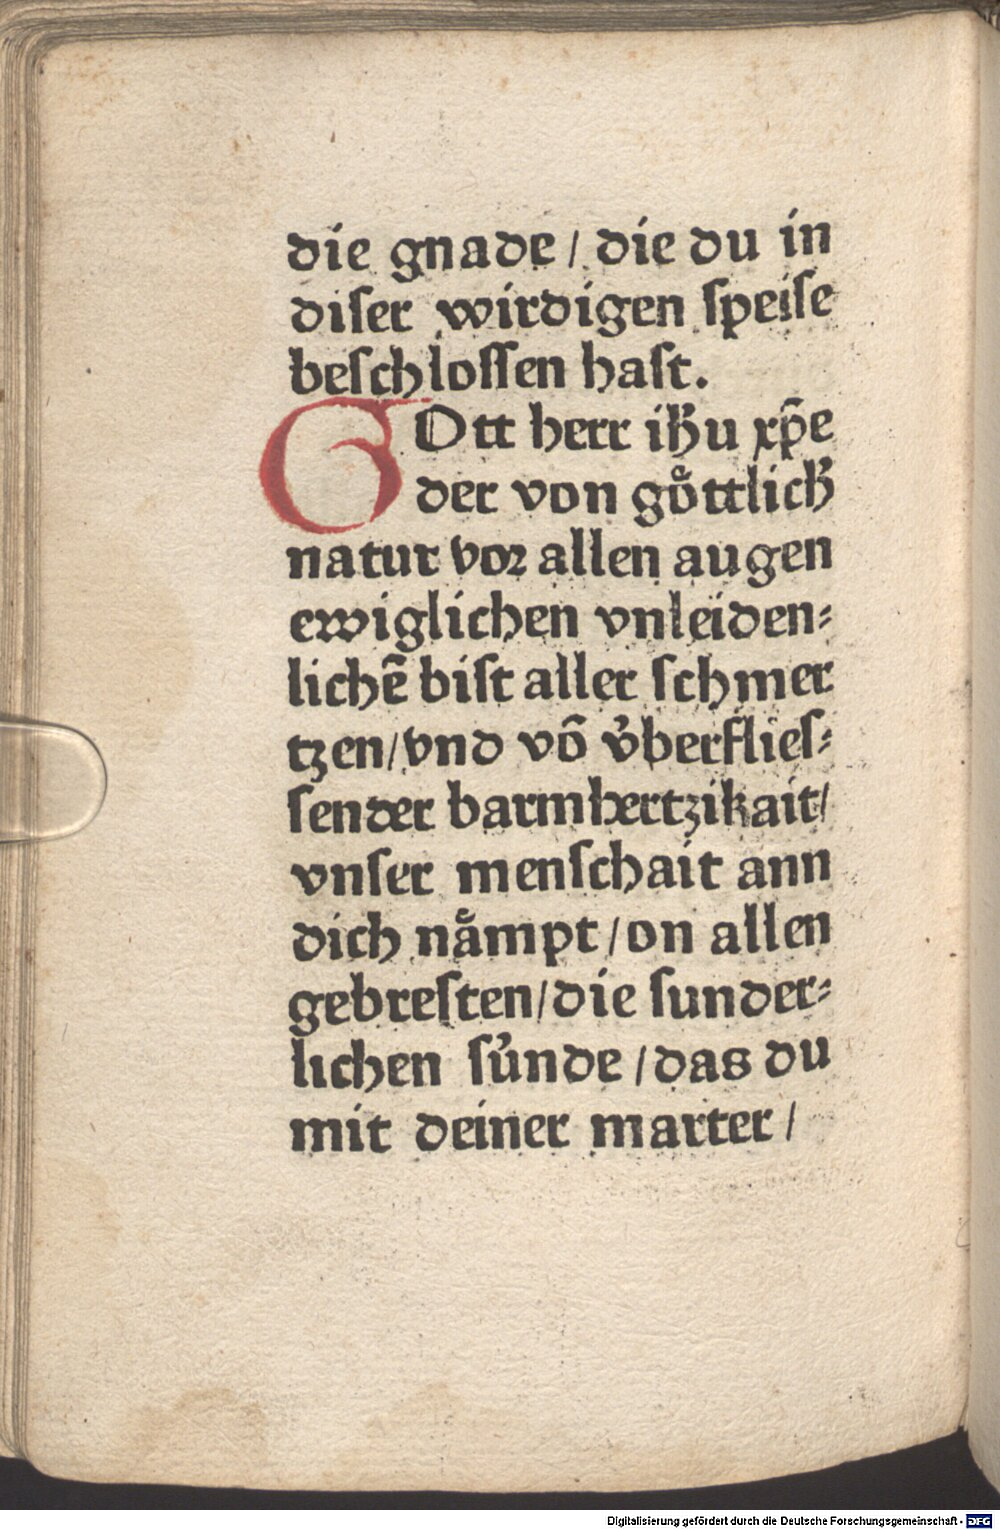 die gnade / die du in
diser wirdigen speise
beschlossen hast.
GOtt herr ihu xp̄e
der von goͤttlich
natur vor allen augen
ewiglichen vnleiden⸗
lichē bist aller schmer
tzen / vnd vō vͤberflies⸗
sender barmhertzikait /
vnser menschait ann
dich naͤmpt / on allen
gebresten / die sunder⸗
lichen suͤnde / das du
mit deiner marter /
Digitalisierung gefördert durch die Deutsche Forschungsgemeinschaft - DFG